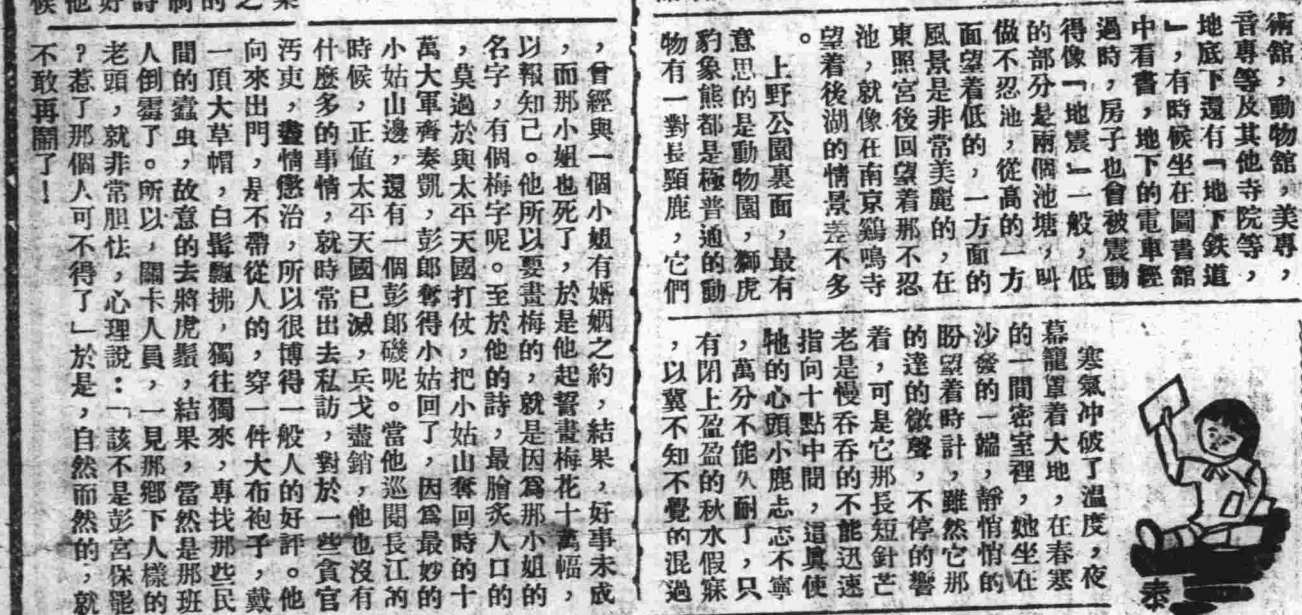 術館，動物館，美專，
音專等及其他寺院等，
地底下還有「地下鉄道
」，有時候坐在圖書舘
中看書，地下的電車經
過時，房子也會被震動
得像「地震」一般，低
的部分是兩個池塘，叫
做不忍池，從高的一方
面望着低的，一方面的
風景是非常美麗的，在
東照宮後回望着那不忍
池，就像在南京鷄鳴寺
望着後湖的情景差不多
。
上野公園裏面，最有
意思的是動物園，獅虎
豹象熊都是極普通的動
物有一對長頸鹿，它們
寒氣冲破了溫度，夜
幕籠罩着大地，在春寒
的一間密室裡，她坐在
沙發的一端，靜悄悄的
盼望着時計，雖然它那
的達的微聲，不停的響
着，可是它那長短針芒
老是慢吞吞的不能迅速
指向十點中間，這眞使
牠的心頭小鹿忐忑不寧
，萬分不能久耐了，只
有閉上盈盈的秋水假寐
，以冀不知不覺的混過
，曾經與一個小姐有婚姻之約，結果，好事未成
，而那小姐也死了，於是他起誓畫梅花十萬幅，
以報知己。他所以要畫梅的，就是因爲那小姐的
名字，有個梅字呢。至於他的詩，最膾炙人口的
，莫過於與太平天國打仗，把小姑山奪回時的十
萬大軍齊奏凱，彭郎奪得小姑回了，因爲最妙的
小姑山邊，還有一個彭郎磯呢。當他巡閱長江的
時候，正值太平天國已滅，兵戈盡銷，他也沒有
什麼多的事情，就時常出去私訪，對於一些貪官
汚吏，盡情懲治，所以很博得一般人的好評。他
向來出門，是不帶從人的，穿一件大布袍子，戴
一頂大草帽，白髯飄拂，獨往獨來，專找那些民
間的蠹虫，故意的去將虎鬚，結果，當然是那班
人倒霉了。所以，關卡人員，一見那鄉下人樣的
老頭，就非常胆怯，心理說：「該不是彭宮保罷
？惹了那個人可不得了」於是，自然而然的，就
不敢再鬧了！